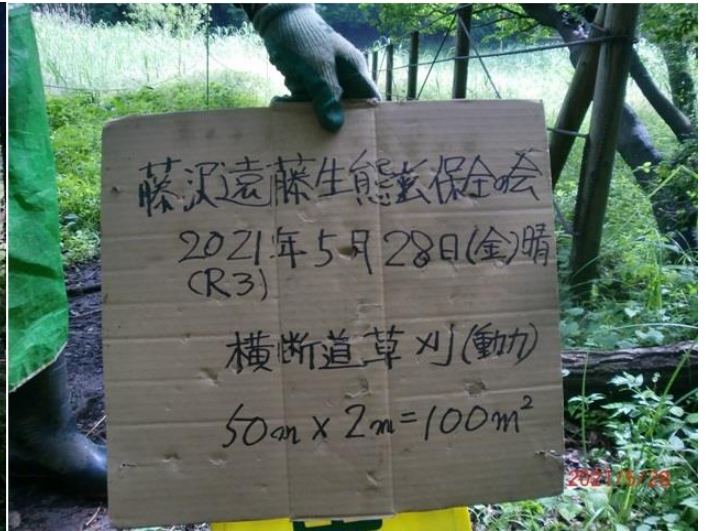 藤沢遠藤生態系保全の会
2021年5月28日(金)晴
(R3)
横断道草刈(動力)
50m×2m=100m²
2021/5/28